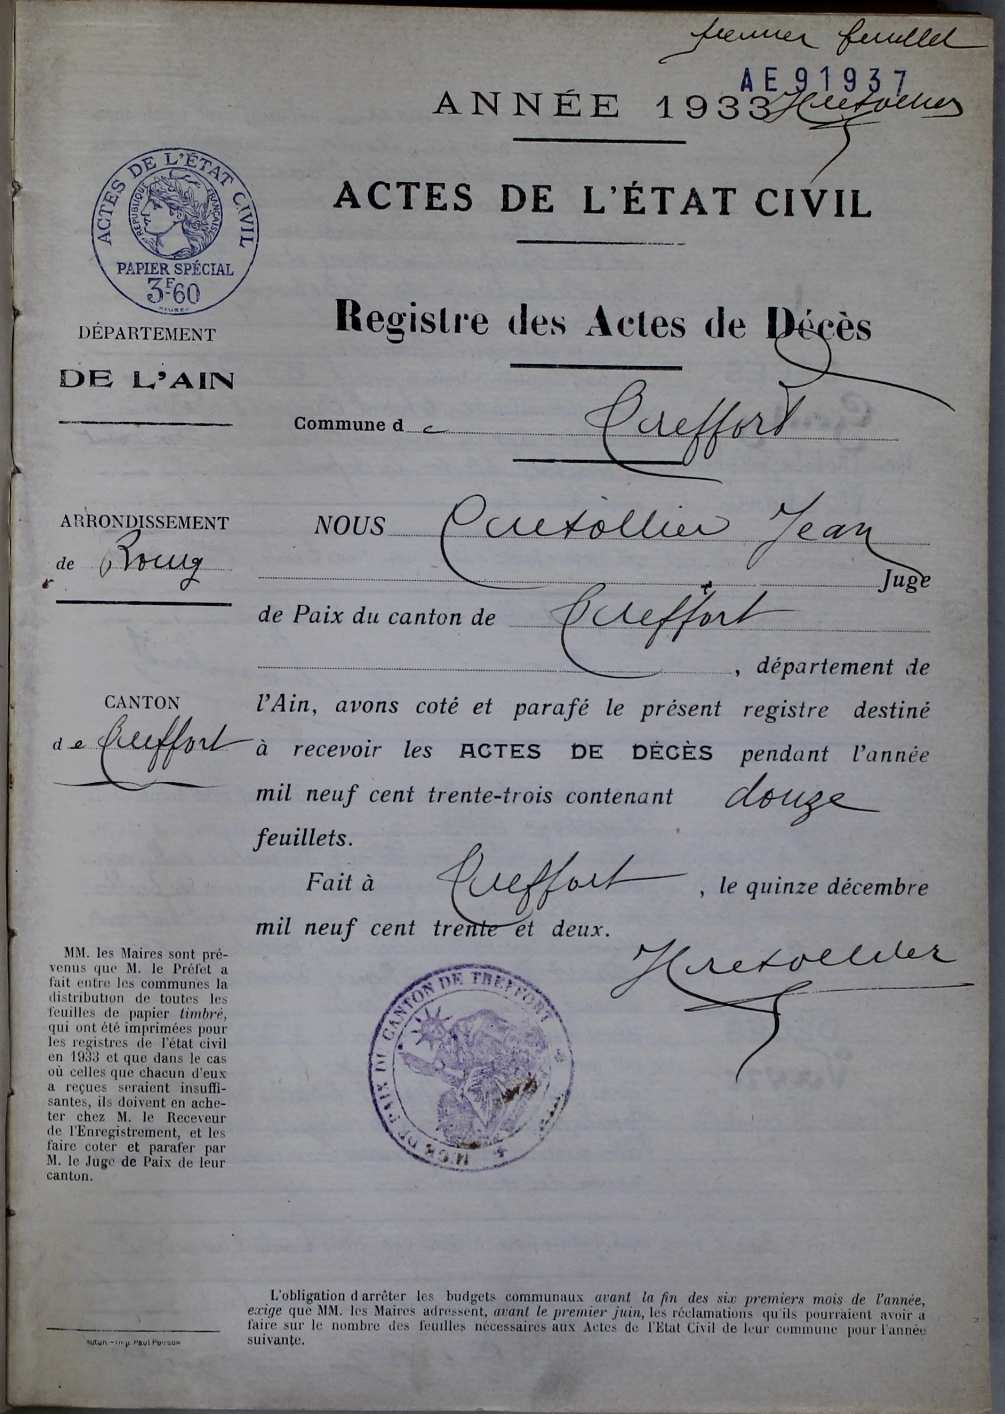 premier feuillet
AE91937
ANNÉE 1933
ACTES DE L'ÉTAT CIVIL
ACTES DE L'ÉTAT CIVIL
RÉPUBLIQUE FRANÇAISE
PAPIER SPÉCIAL
3F60
Registre des Actes de Décès
DÉPARTEMENT
DE L'AIN
Commune de Treffort
ARRONDISSEMENT
de Bourg
NOUS Jean
Juge
de Paix du canton de Treffort
, département de
CANTON
de Treffort
l'Ain, avons coté et parafé le présent registre destiné
à recevoir les ACTES DE DÉCÈS pendant l'année
mil neuf cent trente-trois contenant douze
feuillets.
Fait à Treffort, le quinze décembre
mil neuf cent trente et deux.
CANTON DE TREFFORT
MM. les Maires sont pré-
venus que M. le Préfet a
fait entre les communes la
distribution de toutes les
feuilles de papier timbré,
qui ont été imprimées pour
les registres de l'état civil
en 1933 et que dans le cas
où celles que chacun d'eux
a reçues seraient insuffi-
santes, ils doivent en ache-
ter chez M. le Receveur
de l'Enregistrement, et les
faire coter et parafer par
M. le Juge de Paix de leur
canton.
L'obligation d'arrêter les budgets communaux avant la fin des six premiers mois de l'année,
exige que MM. les Maires adressent, avant le premier juin, les réclamations qu'ils pourraient avoir à
faire sur le nombre des feuilles nécessaires aux Actes de l'Etat Civil de leur commune pour l'année
suivante.